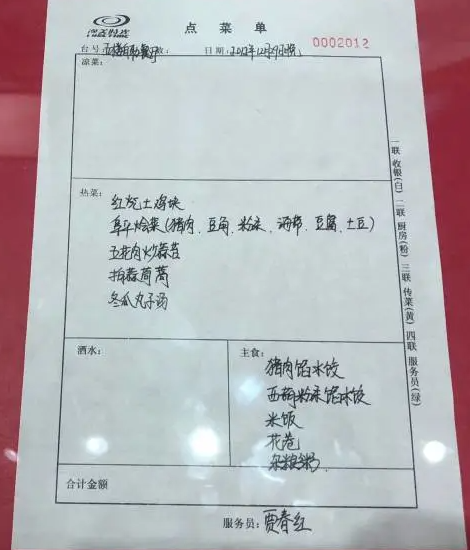 点菜单
台号: 数: 日期: 2012年12月29日晚
0002012
凉菜:
热菜:
红烧土鸡块
阜平烩菜(猪肉、豆角、粉条、海带、豆腐、土豆)
五花肉炒蒜苔
拍蒜茼蒿
冬瓜丸子汤
酒水:
主食:
猪肉馅水饺
西葫粉条馅水饺
米饭
花卷
杂粮粥
合计金额
服务员: 贾春红
一联 收银(白) 二联 厨房(粉) 三联 传菜(黄) 四联 服务员(绿)